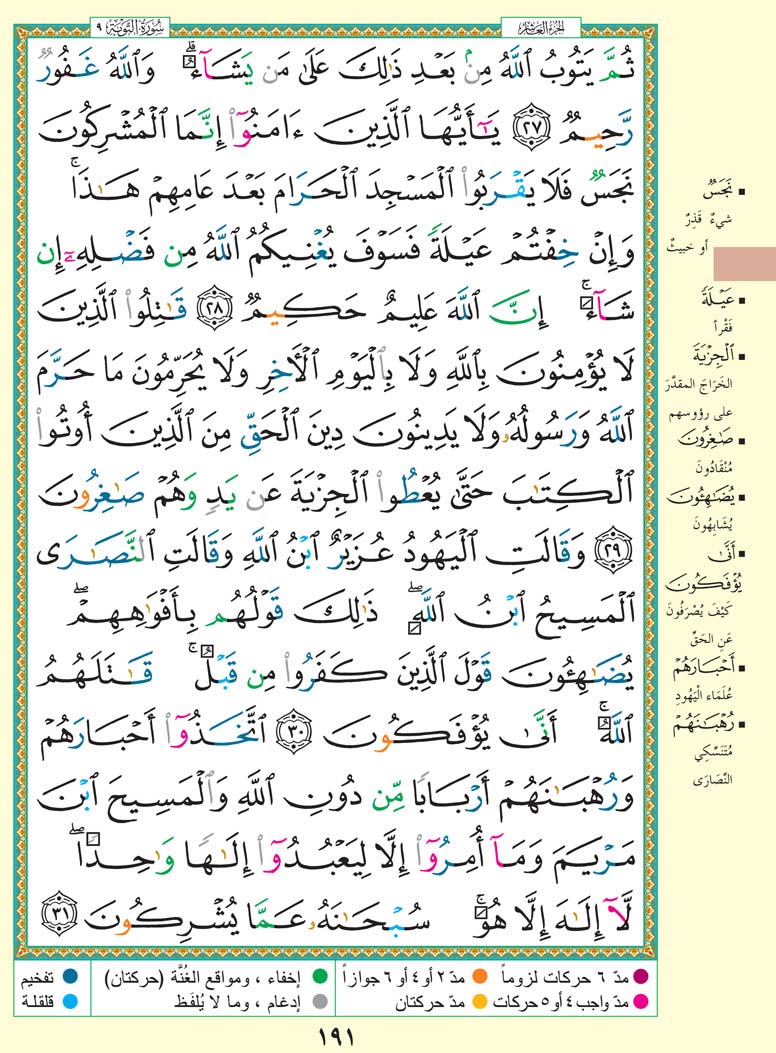 سُورَةُ التَّوْبَةِ ٩
الجُزْءُ العَاشِرُ
ثُمَّ يَتُوبُ ٱللَّهُ مِنۢ بَعْدِ ذَٰلِكَ عَلَىٰ مَن يَشَآءُ ۗ وَٱللَّهُ غَفُورٌ
رَّحِيمٌ ﴿٢٧﴾ يَٰٓأَيُّهَا ٱلَّذِينَ ءَامَنُوٓا۟ إِنَّمَا ٱلْمُشْرِكُونَ
نَجَسٌ فَلَا يَقْرَبُوا۟ ٱلْمَسْجِدَ ٱلْحَرَامَ بَعْدَ عَامِهِمْ هَٰذَا ۚ
وَإِنْ خِفْتُمْ عَيْلَةً فَسَوْفَ يُغْنِيكُمُ ٱللَّهُ مِن فَضْلِهِۦٓ إِن
شَآءَ ۚ إِنَّ ٱللَّهَ عَلِيمٌ حَكِيمٌ ﴿٢٨﴾ قَٰتِلُوا۟ ٱلَّذِينَ
لَا يُؤْمِنُونَ بِٱللَّهِ وَلَا بِٱلْيَوْمِ ٱلْءَاخِرِ وَلَا يُحَرِّمُونَ مَا حَرَّمَ
ٱللَّهُ وَرَسُولُهُۥ وَلَا يَدِينُونَ دِينَ ٱلْحَقِّ مِنَ ٱلَّذِينَ أُوتُوا۟
ٱلْكِتَٰبَ حَتَّىٰ يُعْطُوا۟ ٱلْجِزْيَةَ عَن يَدٍ وَهُمْ صَٰغِرُونَ
﴿٢٩﴾ وَقَالَتِ ٱلْيَهُودُ عُزَيْرٌ ٱبْنُ ٱللَّهِ وَقَالَتِ ٱلنَّصَٰرَى
ٱلْمَسِيحُ ٱبْنُ ٱللَّهِ ۖ ذَٰلِكَ قَوْلُهُم بِأَفْوَٰهِهِمْ ۖ
يُضَٰهِـُٔونَ قَوْلَ ٱلَّذِينَ كَفَرُوا۟ مِن قَبْلُ ۚ قَٰتَلَهُمُ
ٱللَّهُ ۚ أَنَّىٰ يُؤْفَكُونَ ﴿٣٠﴾ ٱتَّخَذُوٓا۟ أَحْبَارَهُمْ
وَرُهْبَٰنَهُمْ أَرْبَابًا مِّن دُونِ ٱللَّهِ وَٱلْمَسِيحَ ٱبْنَ
مَرْيَمَ وَمَآ أُمِرُوٓا۟ إِلَّا لِيَعْبُدُوٓا۟ إِلَٰهًا وَٰحِدًا ۖ
لَّآ إِلَٰهَ إِلَّا هُوَ ۚ سُبْحَٰنَهُۥ عَمَّا يُشْرِكُونَ ﴿٣١﴾
▪ نَجَسٌ
شيءٌ قَذِرٌ
أو خبيثٌ
▪ عَيْلَةً
فَقْراً
▪ ٱلْجِزْيَةَ
الخَرَاجَ المقدَّرَ
على رؤوسهم
▪ صَٰغِرُونَ
مُنْقَادُونَ
▪ يُضَٰهِـُٔونَ
يُشَابِهُونَ
▪ أَنَّىٰ
يُؤْفَكُونَ
كَيْفَ يُصْرَفُونَ
عَنِ الحَقِّ
▪ أَحْبَارَهُمْ
عُلَمَاءَ الْيَهُودِ
▪ رُهْبَٰنَهُمْ
مُتَنَسِّكِي
النَّصَارَى
مدّ ٦ حركات لزوماً ● مدّ ٢ أو ٤ أو ٦ جوازاً ● إخفاء ، ومواقع الغُنَّة (حركتان) ● تفخيم
مدّ واجب ٤ أو ٥ حركات ● مدّ حركتان ● إدغام ، وما لا يُلفَظ ● قلقلة
١٩١